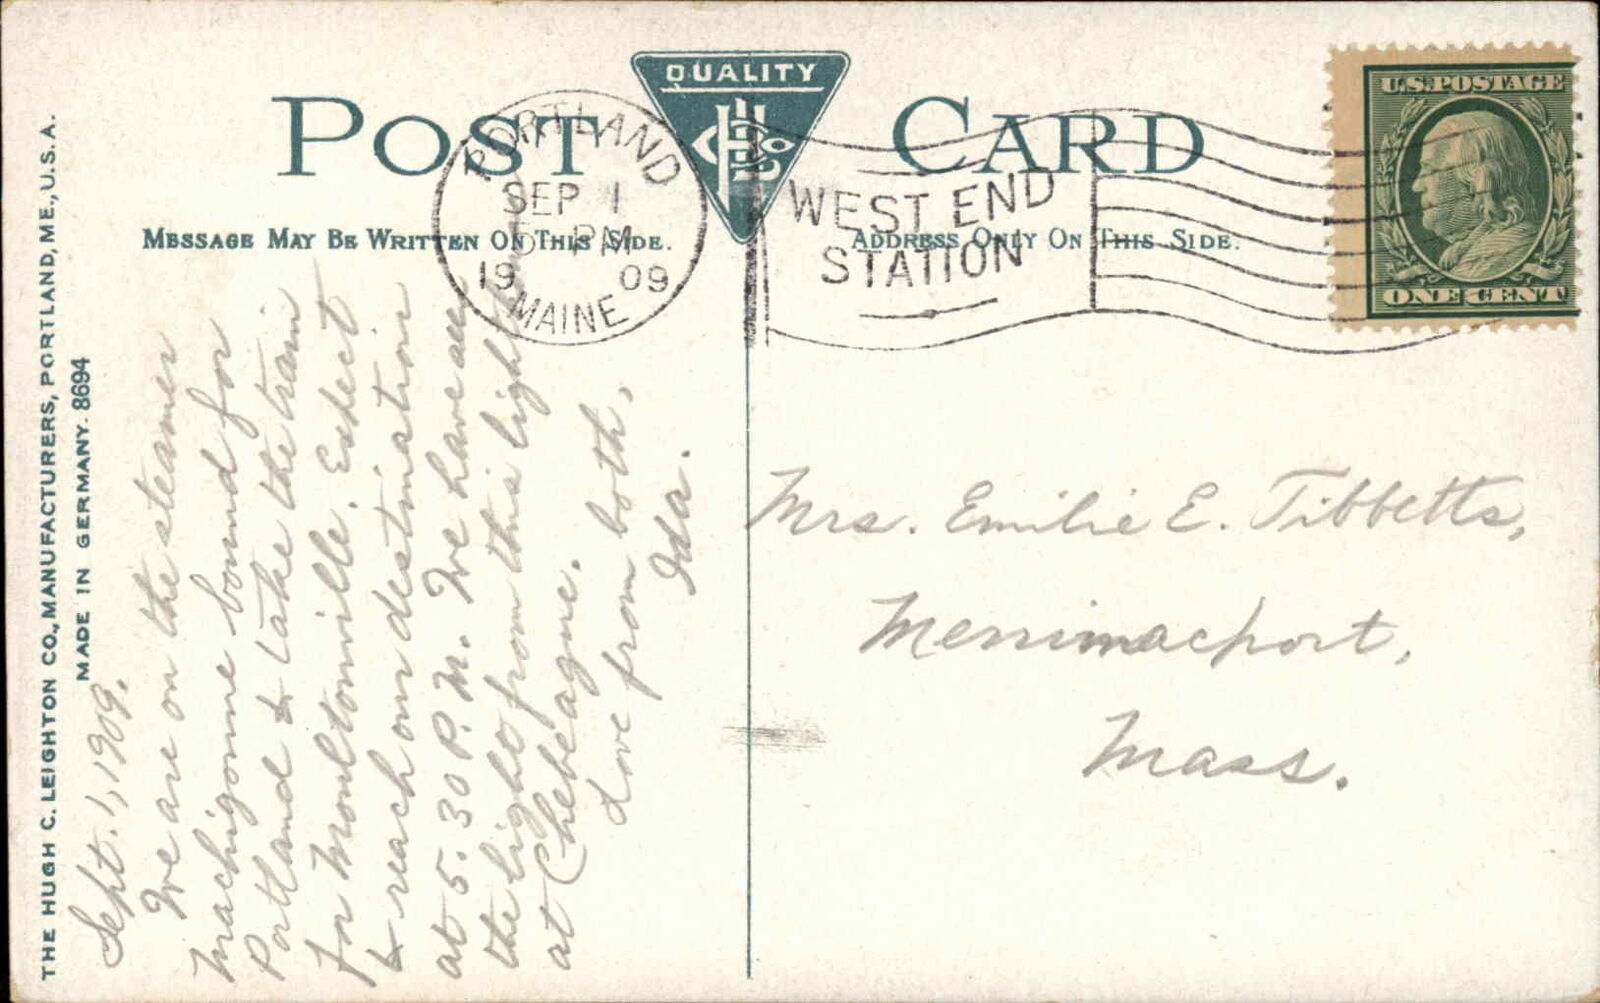 THE HUGH C. LEIGHTON CO., MANUFACTURERS, PORTLAND, ME., U.S.A.
MADE IN GERMANY. 8694
POST CARD
QUALITY
MESSAGE MAY BE WRITTEN ON THIS SIDE.
ADDRESS ONLY ON THIS SIDE.
PORTLAND
SEP 1
5 PM
1909
MAINE
WEST END
STATION
U.S. POSTAGE
ONE CENT
Sept. 1, 1909.
We are on the steamer
Machigonne bound for
Portland & take the train
for Moultonville. Expect
to reach our destination
at 5.30 P.M. We have all
the light from this lighthouse
at Chebeague.
Love from both,
Ida.
Mrs. Emilie E. Tibbetts,
Merrimacport,
Mass.